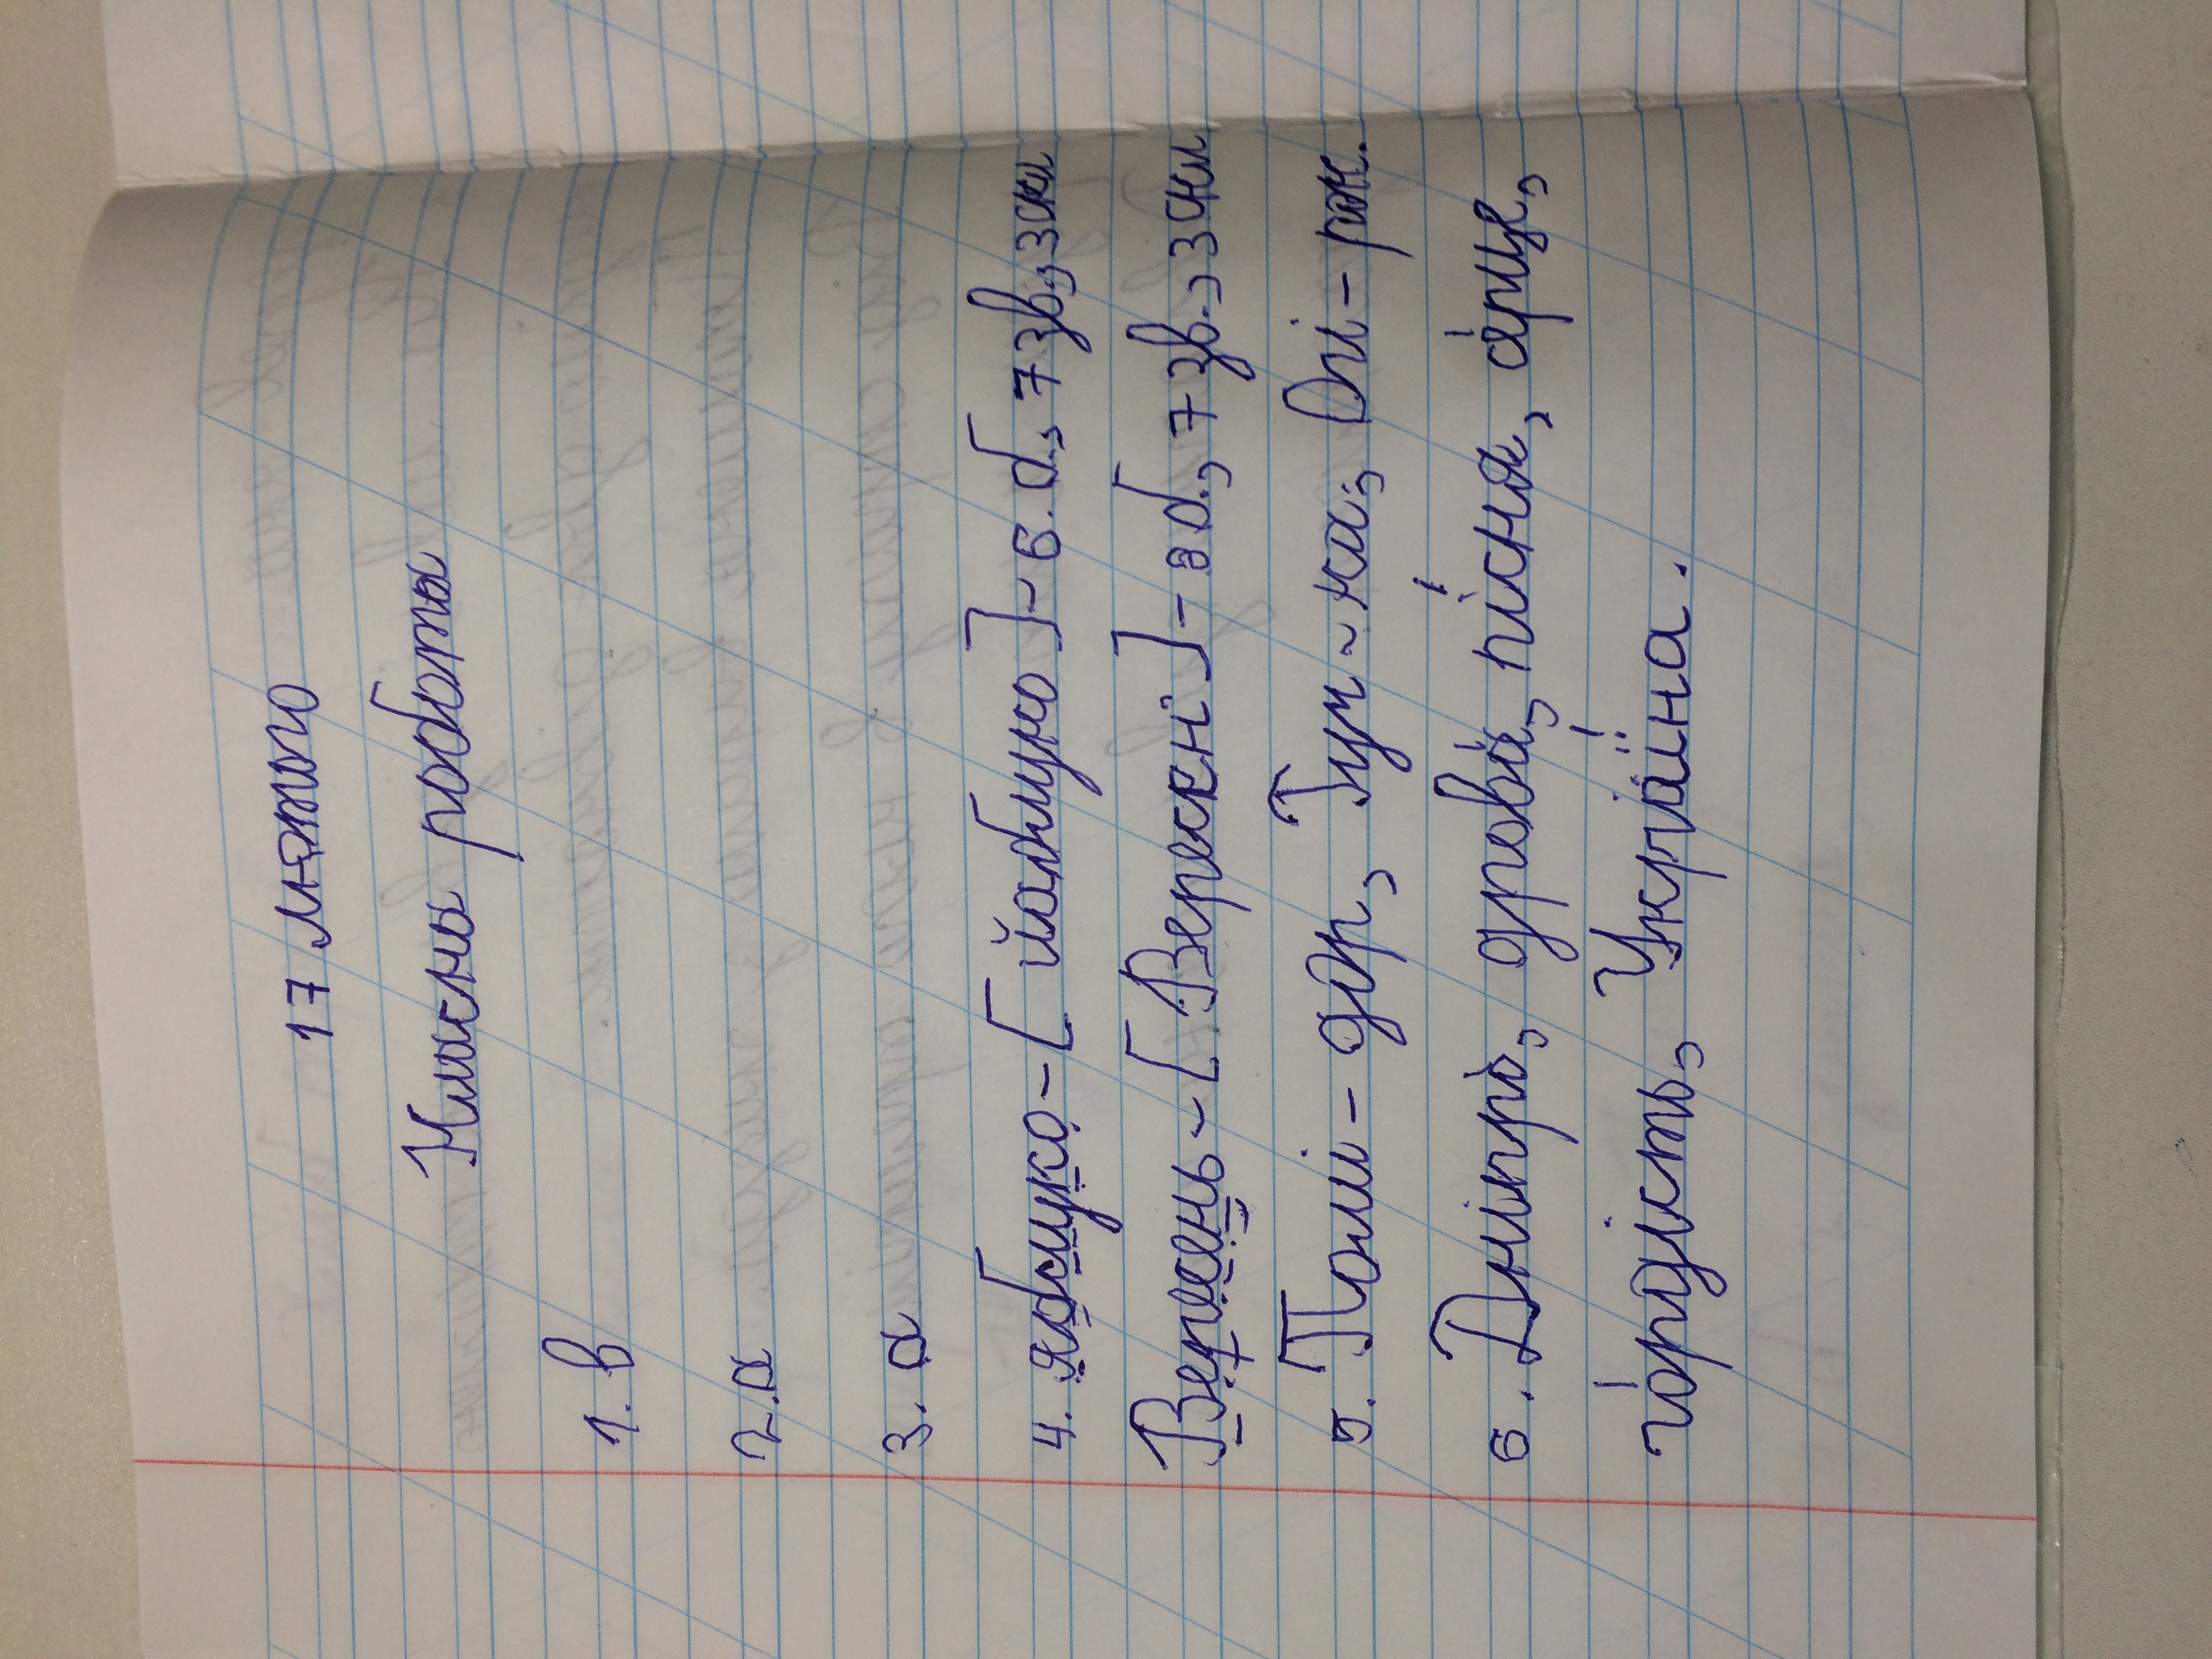 17 лютого
Класна робота
1. в
2. а
3. а
4. яблуко - [йаблуко] - 6. б., 7 зв., 3 скл
Вересень - [Вересен'] - 8 б., 7 зв., 3 скл
5. Полі - гор, Гум - ка, Олі - рж.
6. Дніпро, дрова, пісня, аркуш,
гордість, Україна.